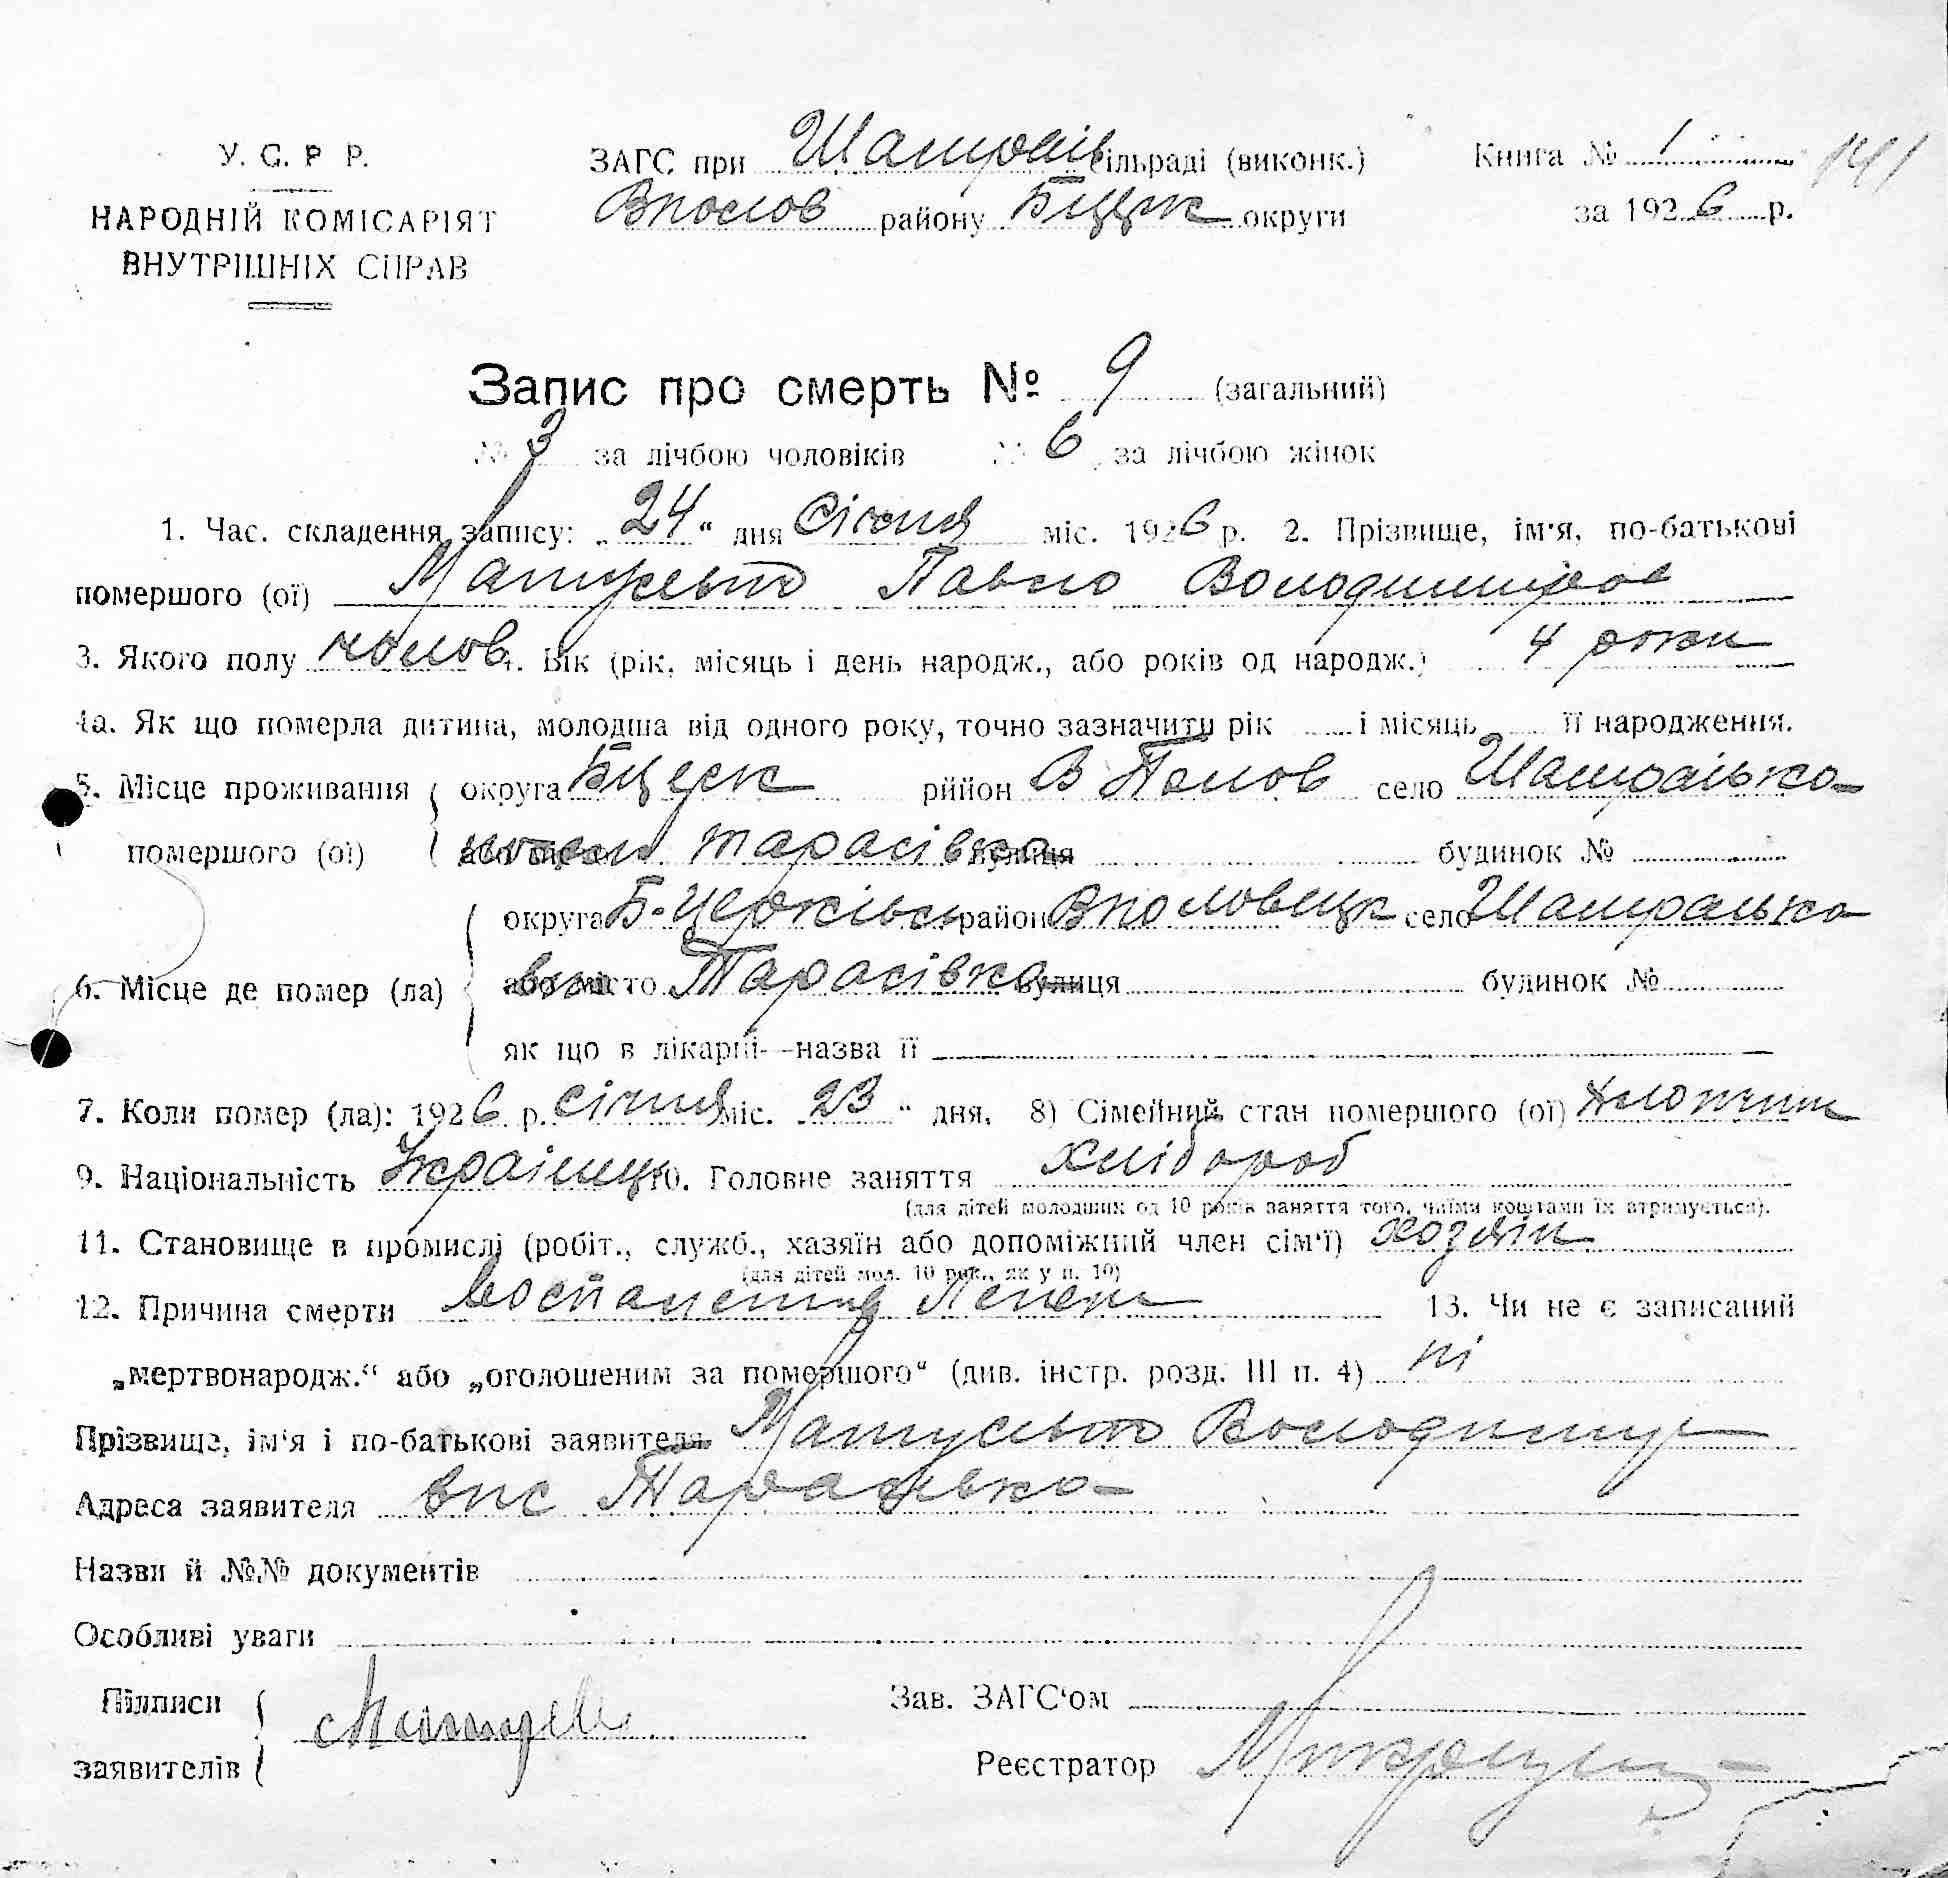 У. С. Р. Р.
НАРОДНІЙ КОМІСАРІЯТ
ВНУТРІШНІХ СПРАВ
ЗАГС при Шамраїв сільраді (виконк.)
Вполов району Бцерк округи
Книга № 1 141
за 1926 р.
Запис про смерть № 9 (загальний)
№ 3 за лічбою чоловіків № 6 за лічбою жінок
1. Час. складення запису: „24“ дня Січня міс. 1926 р. 2. Прізвище, ім'я, по-батькові
помершого (ої) Матусевич Павло Володимиров
3. Якого полу чолов 4. Вік (рік, місяць і день народж., або років од народж.) 4 роки
4а. Як що померла дитина, молодша від одного року, точно зазначити рік і місяць її народження.
5. Місце проживання округа Бцерк рйіон В Полов село Шамраівка
помершого (ої) або місто Тарасівка вулиця будинок №
округа Б-Церківськ район Вполовецк село Шамраівка
6. Місце де помер (ла) або місто Тарасівка вулиця будинок №
як що в лікарні—назва її
7. Коли помер (ла): 1926 р. січня міс. 23 “ дня. 8) Сімейний стан помершого (ої) хлопчик
9. Національність Україниц 10. Головне заняття хлібороб
(для дітей молодших од 10 років заняття того, чиїми коштами їх втримується).
11. Становище в промислі (робіт., служб., хазяїн або допоміжний член сім'ї) хозяїн
(для дітей мол. 10 рок., як у п. 10)
12. Причина смерти Воспаления Легких 13. Чи не є записаний
„мертвонародж.“ або „оголошеним за помершого“ (див. інстр. розд. III п. 4) ні
Прізвище, ім'я і по-батькові заявителя Володимир
Адреса заявителя Тарасівка
Назви й №№ документів
Особливі уваги
Підписи
заявителів
Зав. ЗАГС'ом
Реєстратор